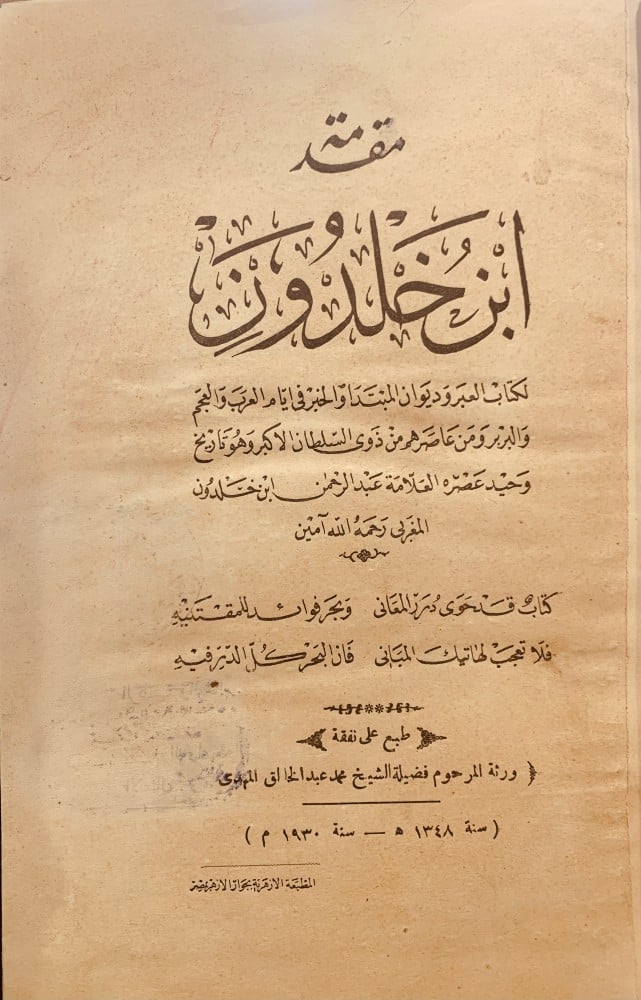 مقدمة
ابن خَلدُونَ
لكتاب العبر وديوان المبتدا والخبر فى ايام العرب والعجم
والبربر ومن عاصرهم من ذوى السلطان الاكبر وهو تاريخ
وحيد عصره العلامة عبد الرحمن ابن خلدون
المغربى رحمه الله آمين
كتاب قد حوى درر المعانى وبحر فوائد للمقتنيه
فلا تعجب لهاتيك المبانى فان البحر كل الدر فيه
طبع على نفقة
ورثة المرحوم فضيلة الشيخ محمد عبد الخالق المهدى
( سنة ١٣٤٨ ه — سنة ١٩٣٠ م )
المطبعة الازهرية بجوار الازهر بمصر